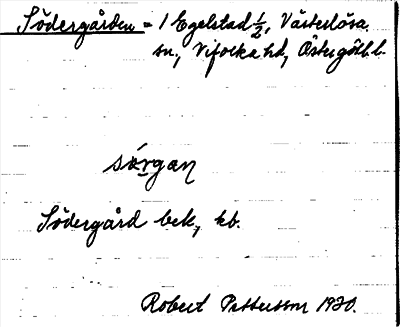 Södergården = 1 Egelstad ½, Västerlösa
sn, Vifolka hd, Östergötl. l.
sǿrgan
Södergård bek, kb.
Robert Pettersson 1920.